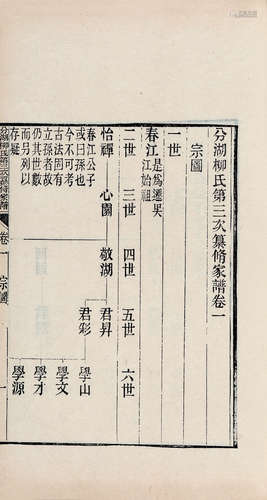 分湖柳氏第三次纂脩家譜卷一
宗圖
一世
春江 是為遷吳江始祖
二世 三世 四世 五世 六世
怡禪 心園 敬湖 君昇
君彩 學山
學文
學才
學源
春江公子
或曰孫也
今不可考
古法固有
立孫者故
仍其世數
而另列以
存疑
分湖柳氏第三次纂脩家譜 卷一 宗圖 一